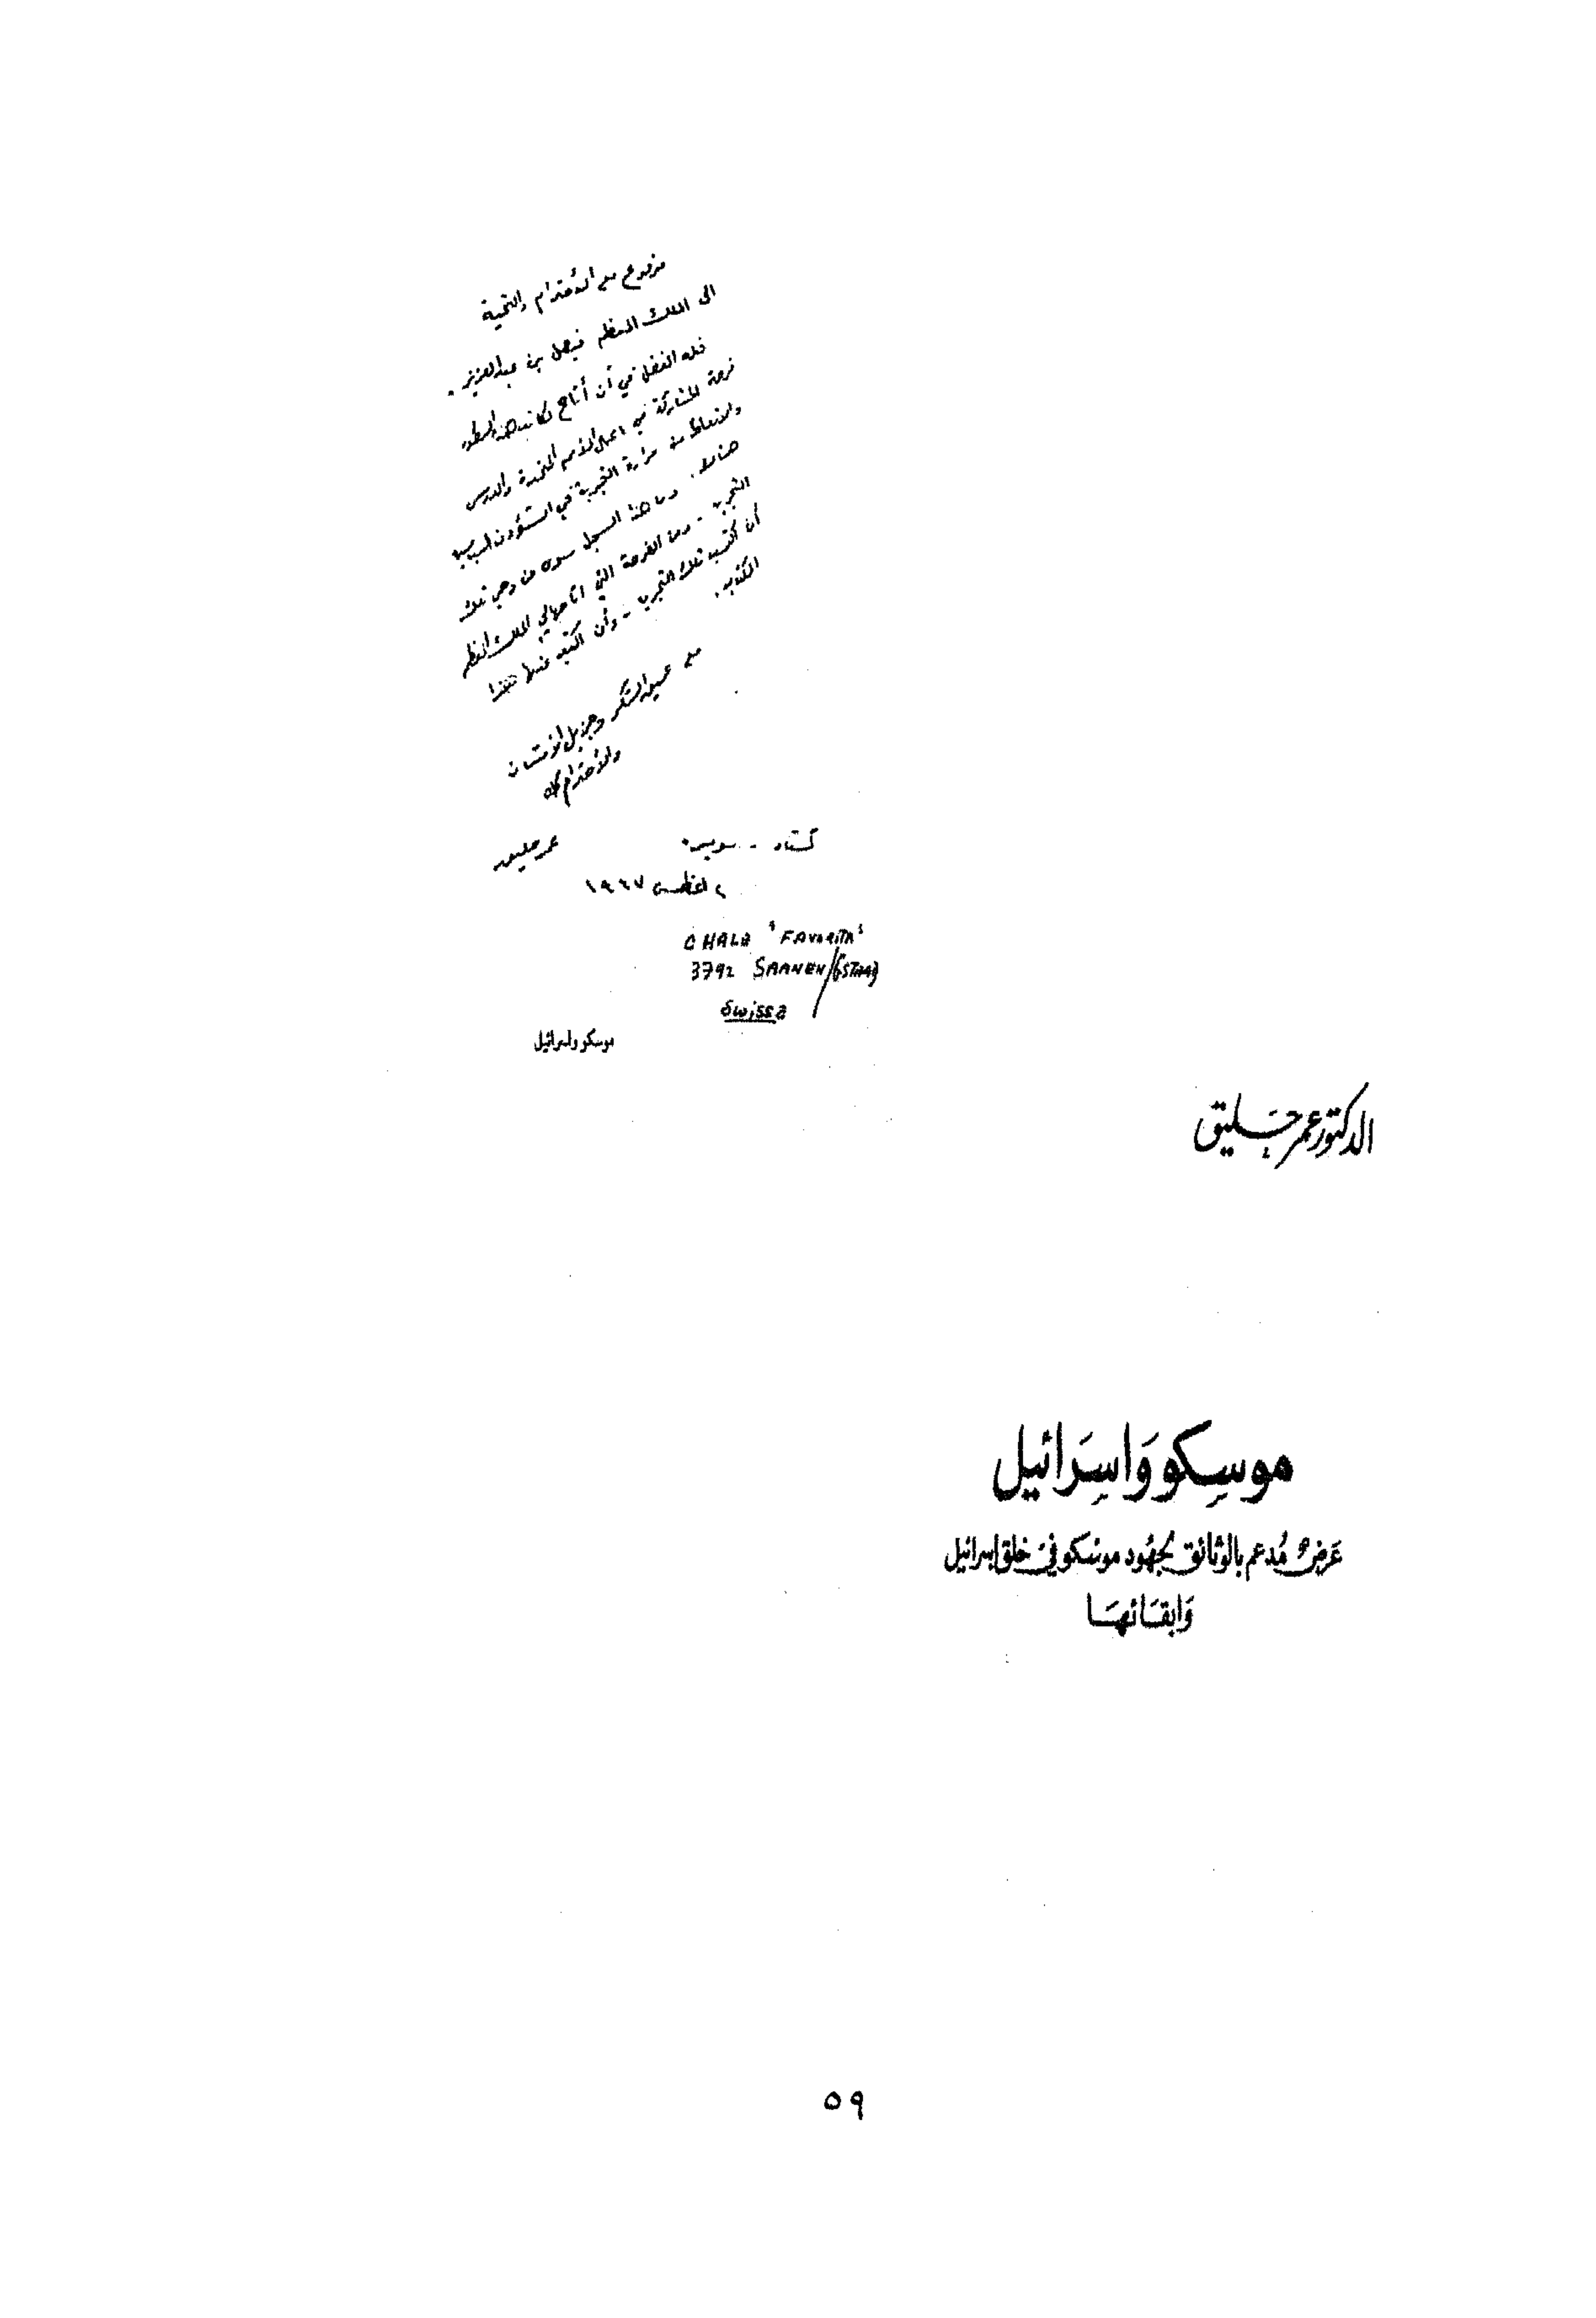 مرفوع مع الاحترام والتحية
الى الملك المعظم فيصل بن عبدالعزيز .
فله الفضل في أن أتاح لكاتب هذه السطور
فرصة المشاركة في اعمال الأمم المتحدة والدرس
والاتعاظ من مرارة التجربة في الشؤون السياسية
هناك . وما هذا السجل سوى من وحي تلك
التجربة - ومن الفرصة التي أتاحها لي الملك المعظم
أن اكتسب تلك التجربة - وأن اكتب عنها هذا
الكتاب .
مع عميق الشكر وجزيل الامتنان
والاحترام
عمر حليق
كستاد - سويسرا
٢ اغطس ١٩٦٧
CHALB "FAVORITA"
3792 SAANEN/GSTAAD
Swissa
موسكو واسرائيل
الدكتور عمر حليق
موسِكو وَاسِرَائيل
عَرضٌ مُدعم بالوثائق لجهُود موسكو في خلق إسرائيل
وَابقَائهَا
٥٩